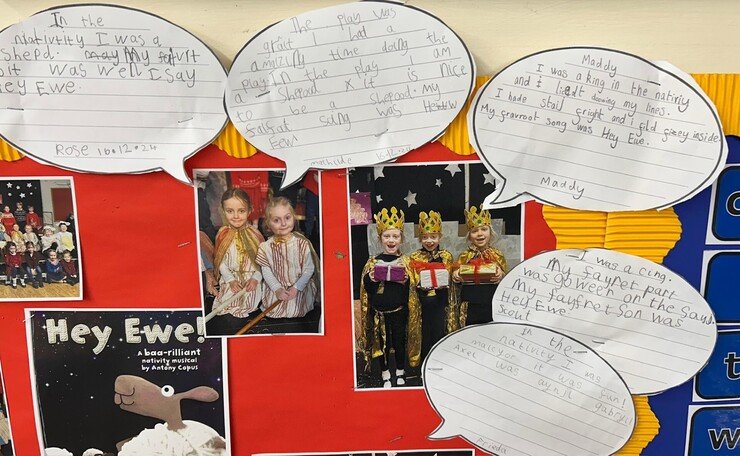 In the
nativtity I was a
shepd. may My faivit
bit was well I say
Hey Ewe.
Rose 16.12.24
The Play was
grait I had a
amazing time doing the
play. In the play I am
a Shepod x it is
to be a shepod. my NICE
fafrat song was Hew
Ewe!
Maddy
I was a king in the nativiy
and I liedt dooing my lines.
I hade stay gright and I fild gixey inside.
My gravroot song was Hey Ewe.
Maddy
I was a cing.
My faynet part
was go ween on the
My fayfnet son was
Hey Ewe
scout
In the
nativity I was
it was fun!
was
Hey Ewe!
A baa-rilliant
nativity musical
by Antony Copus
t
w